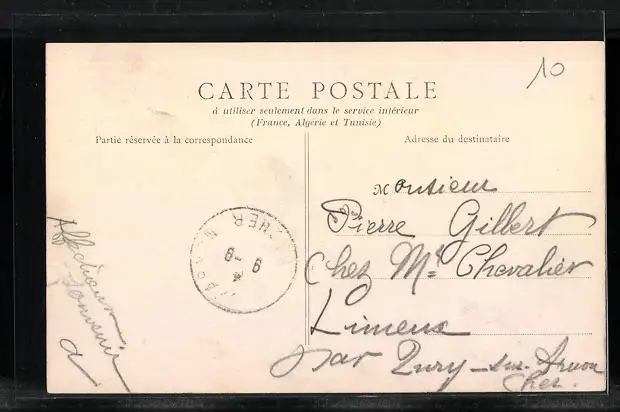 10
CARTE POSTALE
à utiliser seulement dans le service intérieur
(France, Algérie et Tunisie)
Partie réservée à la correspondance
Adresse du destinataire
Monsieur
Pierre Gillert
Chez Mr Chevalier
Limeux
par Qury-sur-
Cher.
Affectueux
souvenir
CHER
9 - 9